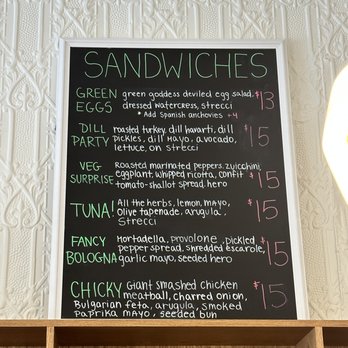 SANDWICHES
GREEN EGGS green goddess deviled egg salad, $13
dressed watercress, strecci
* Add Spanish anchovies +4
DILL PARTY roasted turkey, dill havarti, dill $15
pickles, dill mayo, avocado,
lettuce, on strecci
VEG SURPRISE Roasted marinated peppers, zuicchini, $15
eggplant, whipped ricotta, confit
tomato-shallot spread, hero
TUNA! All the herbs, lemon, mayo, $15
Olive tapenade, arugula,
Strecci
FANCY BOLOGNA Mortadella, provolone, pickled $15
pepper spread, shredded escarole,
garlic mayo, seeded hero
CHICKY Giant smashed chicken $15
meatball, charred onion,
Bulgarian feta, arugula, smoked
paprika mayo, seeded bun